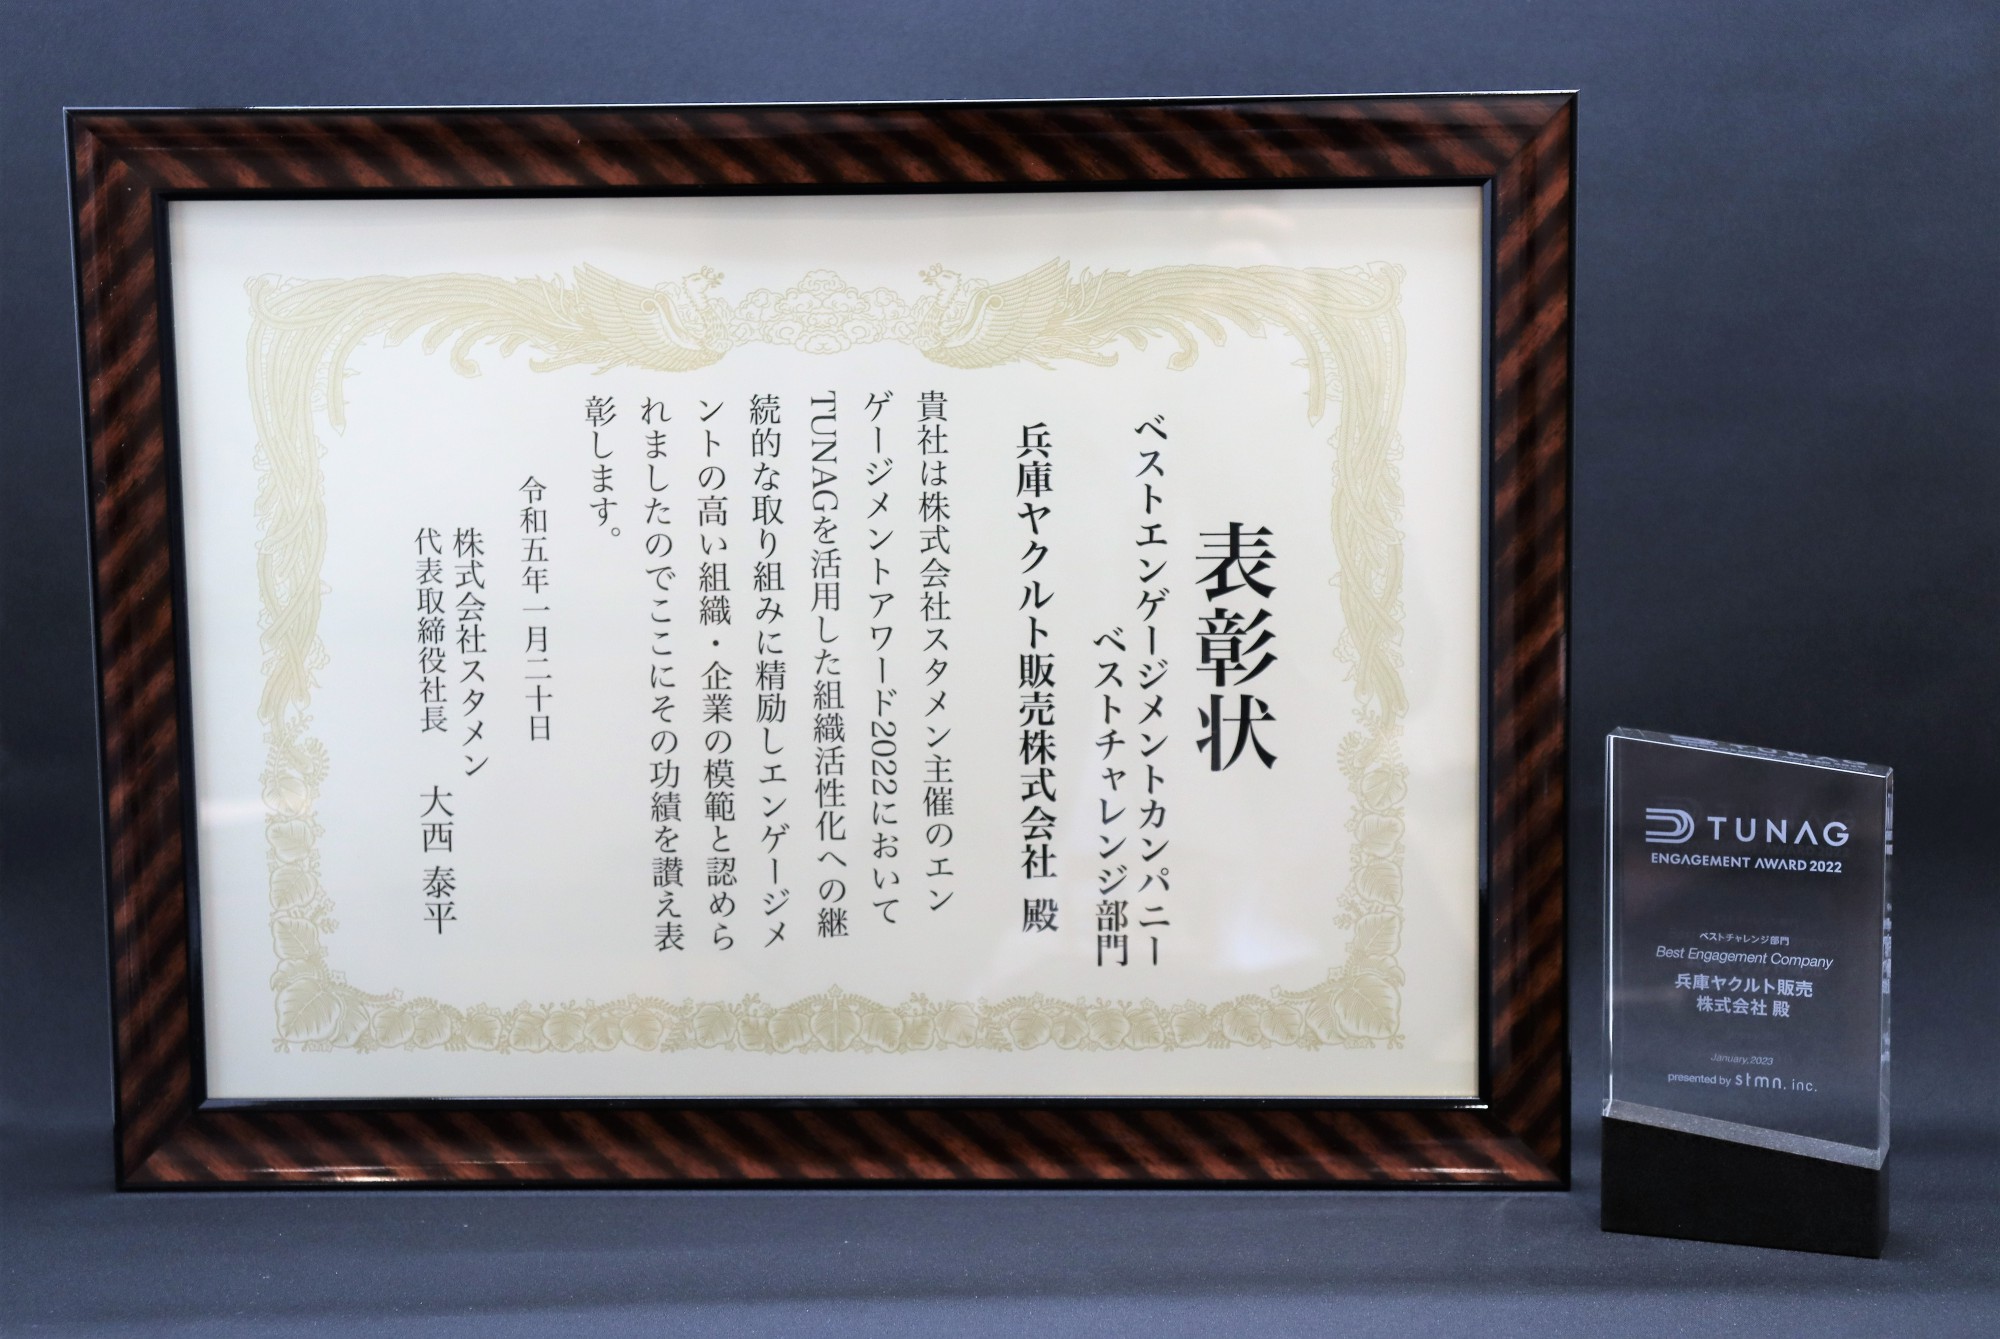 表彰状
ベストエンゲージメントカンパニー
ベストチャレンジ部門
兵庫ヤクルト販売株式会社 殿
貴社は株式会社スタメン主催のエン
ゲージメントアワード2022において
TUNAGを活用した組織活性化への継
続的な取り組みに精励しエンゲージメ
ントの高い組織・企業の模範と認めら
れましたのでここにその功績を讃え表
彰します。
令和五年一月二十日
株式会社スタメン
代表取締役社長 大西 泰平
TUNAG
ENGAGEMENT AWARD 2022
ベストチャレンジ部門
Best Engagement Company
兵庫ヤクルト販売
株式会社 殿
January,2023
presented by stmn, inc.